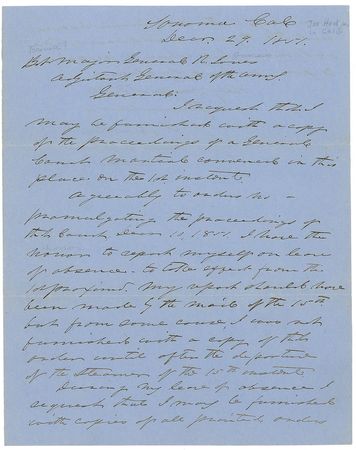 Sonoma Cal
Decr. 29. 1851.
Bvt Major General R. Jones
Adjutant General of the Army
General:
I request that I
may be furnished with a copy
of the proceedings of a General
Court Martial convened in this
place on the 1st instant.
Agreeably to orders No. -
promulgating the proceedings of
this Court, Decr 10, 1851. I have the
honor to report myself on leave
of absence to take effect from the
1st proximo. My report should have
been made by the mail of the 15th
but from some cause I was not
furnished with a copy of this
order until after the departure
of the Steamer of the 15th instant.
During my leave of absence I
request that I may be furnished
with copies of all printed orders